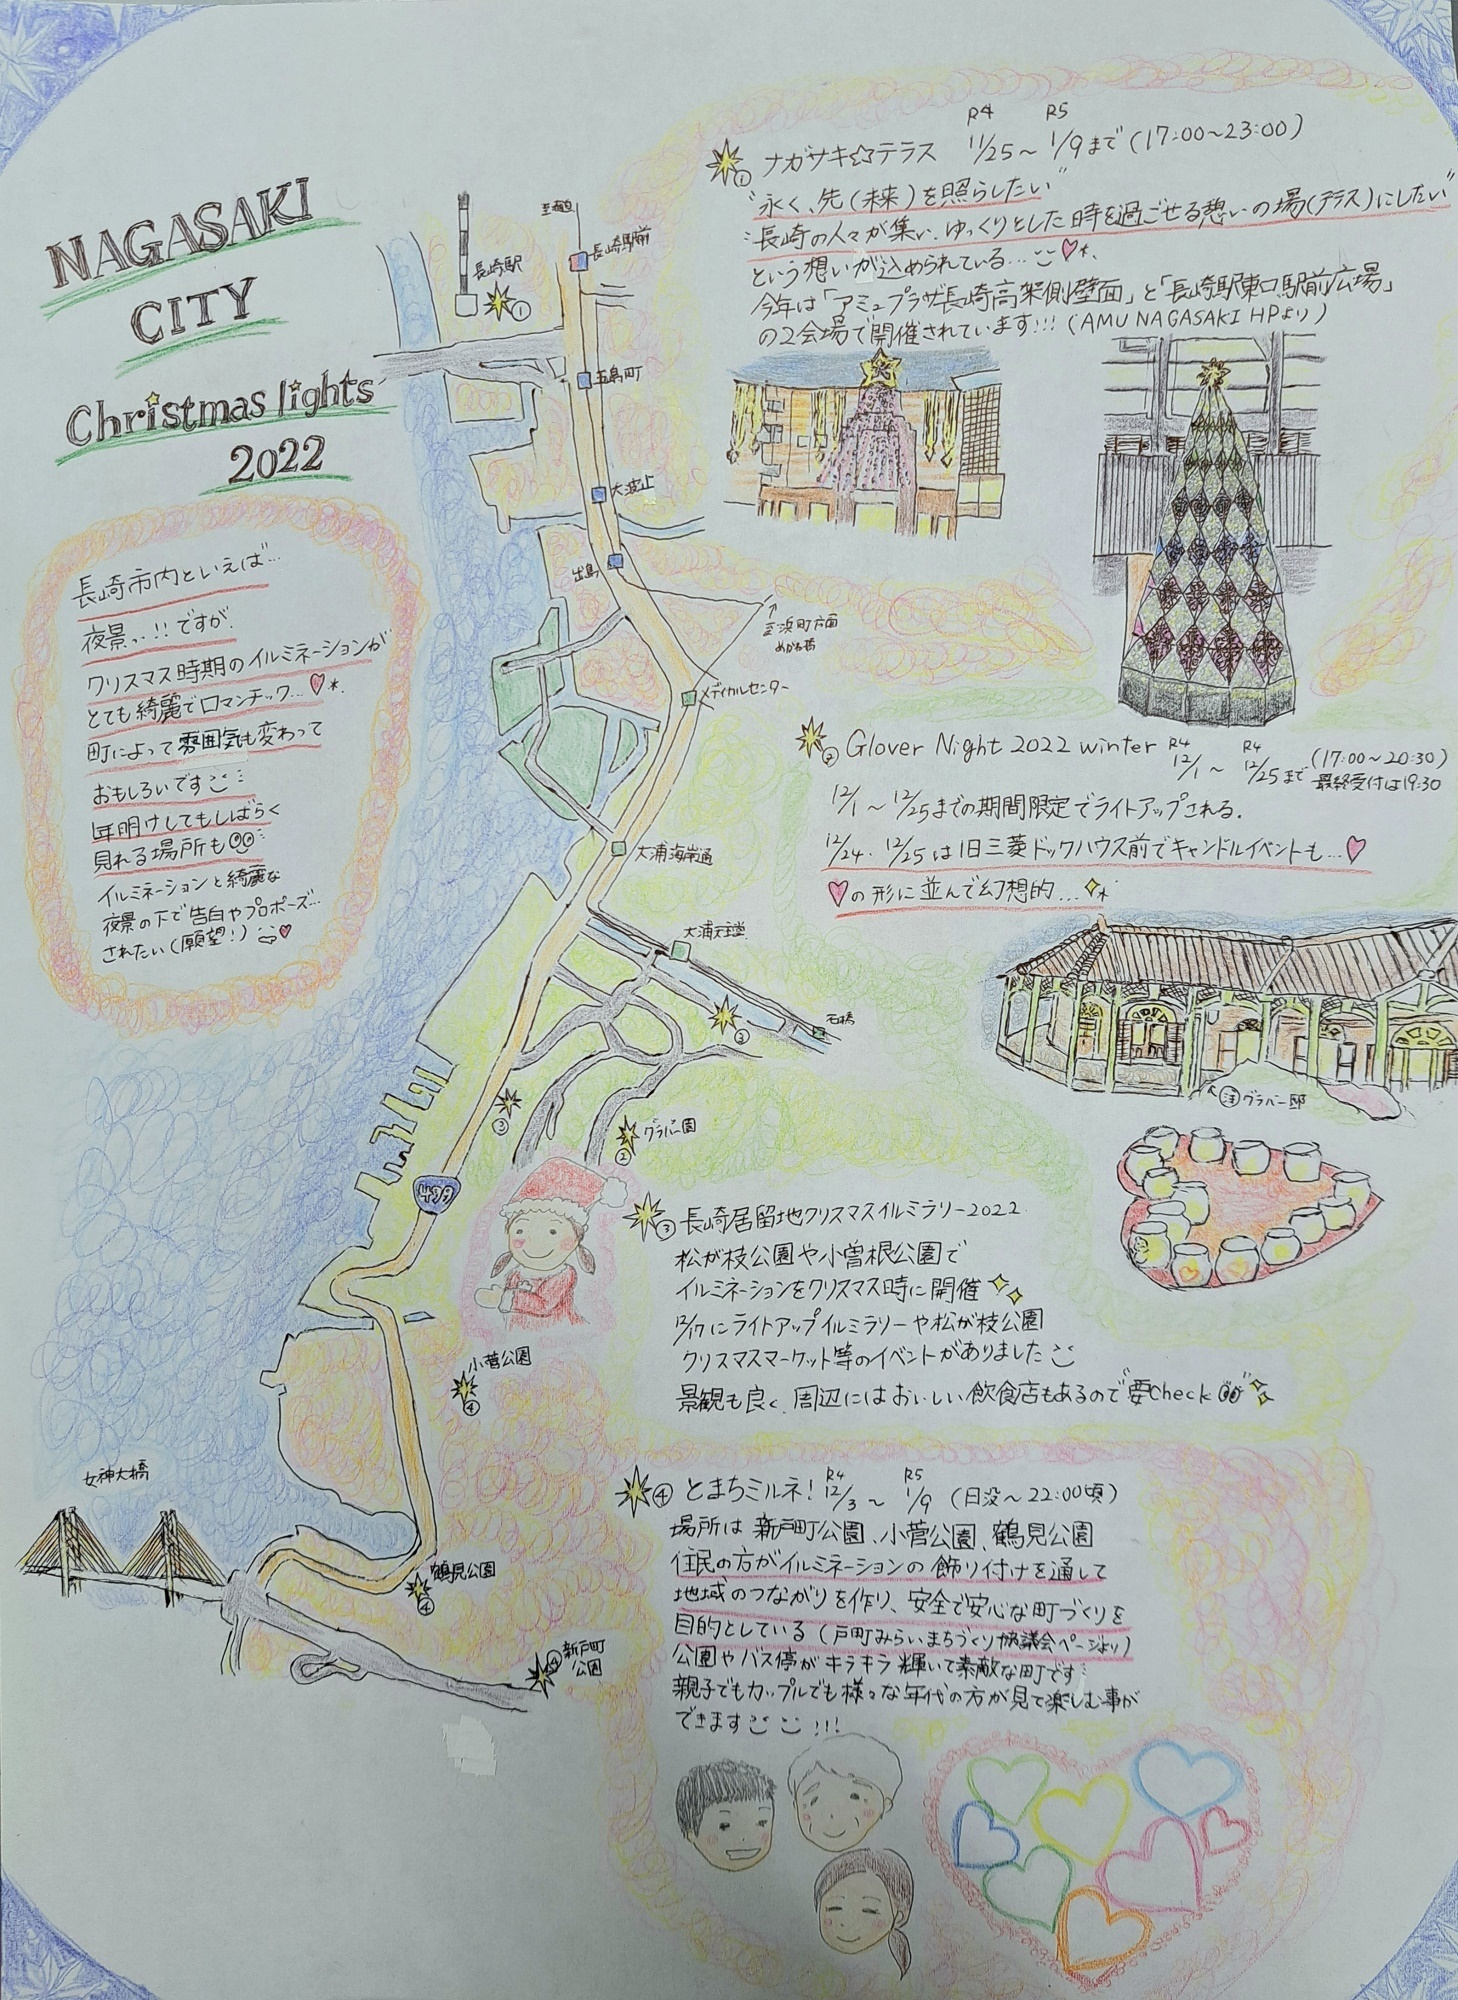 NAGASAKI
CITY
Christmas lights
2022
長崎市内といえば…
夜景っ..!!ですが、
クリスマス時期のイルミネーションが
とても綺麗でロマンチック…
町によって雰囲気も変わって
おもしろいです
年明けしてもしばらく
見れる場所も
イルミネーションと綺麗な
夜景の下で告白やプロポーズ…
されたい(願望!)
長崎駅
①
長崎駅前
五島町
大波止
出島
至浜町方面
めがね橋
メディカルセンター
大浦海岸通
大浦天主堂
石橋
③
③
②
グラバー園
499
小菅公園
④
女神大橋
鶴見公園
④
④
新戸町
公園
R4 R5
① ナガサキ☆テラス 11/25~1/9まで(17:00~23:00)
"永く、先(未来)を照らしたい"
"長崎の人々が集い、ゆっくりとした時を過ごせる憩いの場(テラス)にしたい"
という想いが込められている…
今年は「アミュプラザ長崎高架側壁面」と「長崎駅東口駅前広場」
の2会場で開催されています!!!(AMU NAGASAKI HPより)
② Glover Night 2022 winter R4 12/1~R4 12/25まで(17:00~20:30)
最終受付は19:30
12/1~12/25までの期間限定でライトアップされる。
12/24、12/25は旧三菱ドックハウス前でキャンドルイベントも…
の形に並んで幻想的…
注 グラバー邸
③ 長崎居留地クリスマスイルミラリー2022
松が枝公園や小曽根公園で
イルミネーションをクリスマス時に開催
12/17にライトアップイルミラリーや松が枝公園
クリスマスマーケット等のイベントがありました
景観も良く、周辺にはおいしい飲食店もあるので要Check
④ とまちミルネ! R4 12/3~R5 1/9 (日没~22:00頃)
場所は新戸町公園、小菅公園、鶴見公園
住民の方がイルミネーションの飾り付けを通して
地域のつながりを作り、安全で安心な町づくりを
目的としている(戸町みらいまちづくり協議会ページより)
公園やバス停がキラキラ輝いて素敵な町です
親子でもカップルでも様々な年代の方が見て楽しむ事が
できます !!!